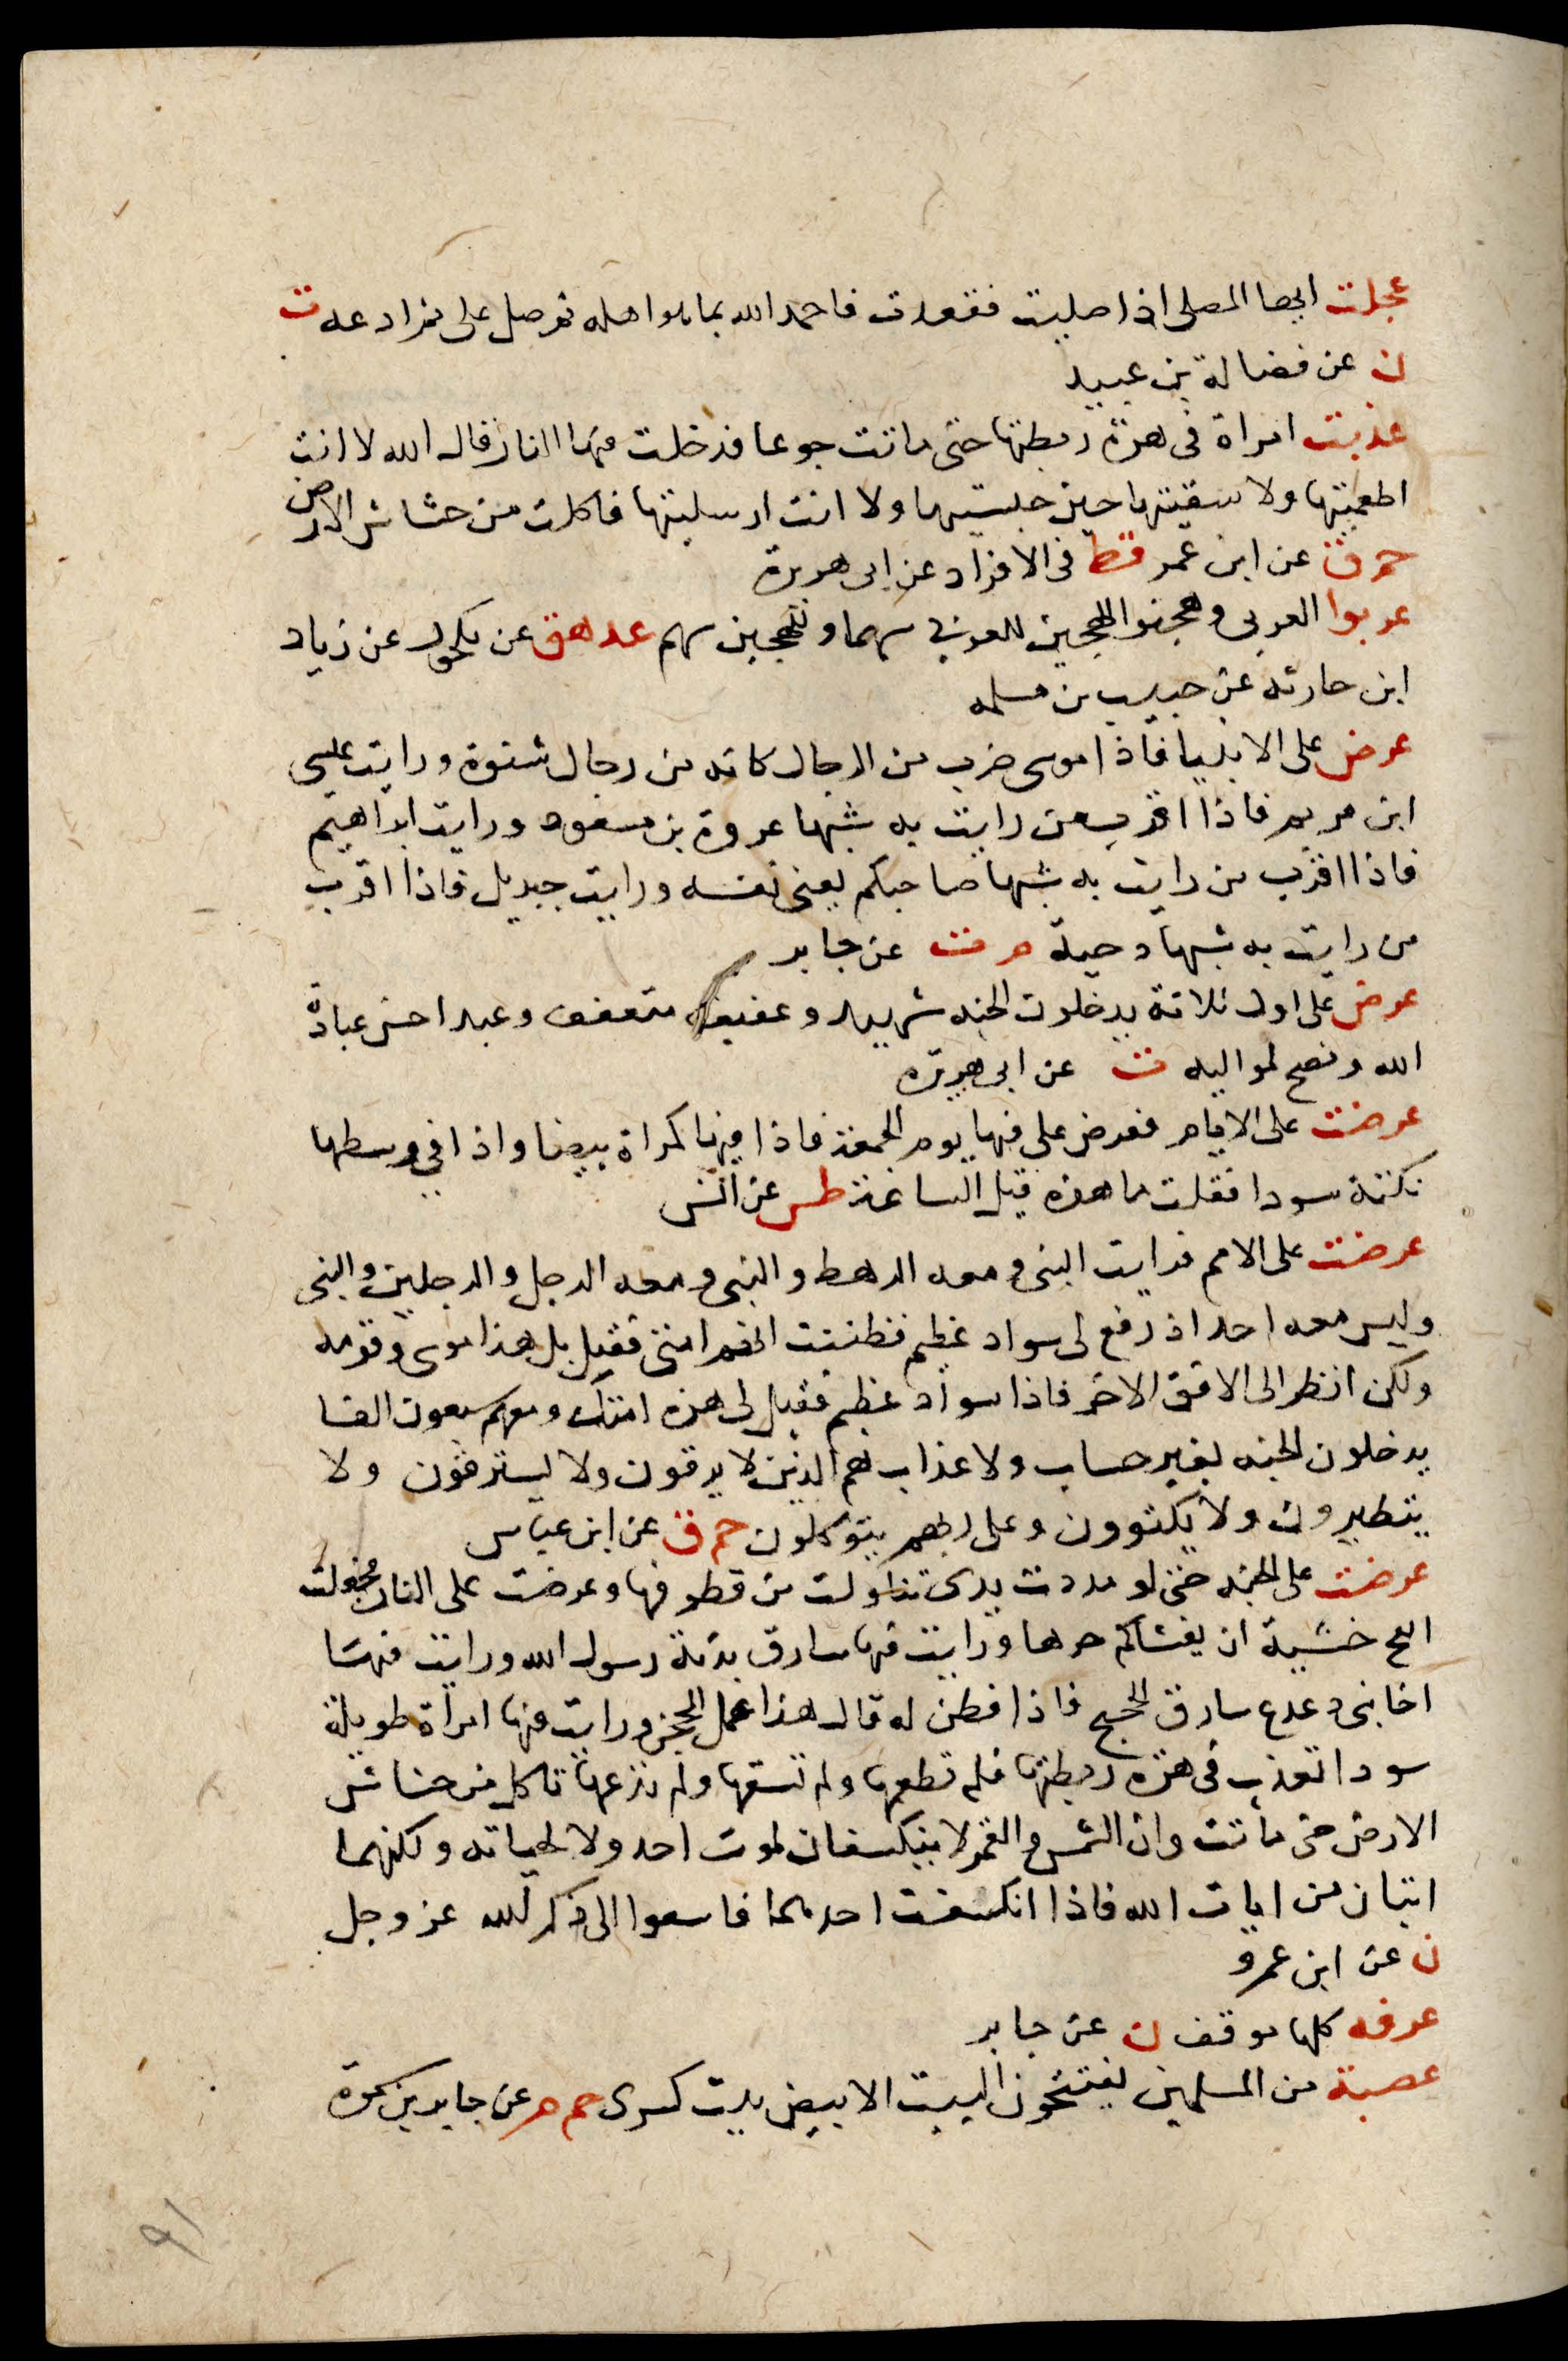 عجلت ايها المصلى اذا صليت فقعدت فاحمد الله بما هو اهله ثم صل على ثم ادعه ت
ن عن فضالة بن عبيد
عذبت امراة فى هرة ربطتها حتى ماتت جوعا فدخلت فيها النار قال الله لا انت
اطعمتيها ولا سقيتيها حين حبستيها ولا انت ارسلتيها فاكلت من خشاش الارض
حم ق عن ابن عمر قط فى الافراد عن ابى هريرة
عربوا العربى وهجنوا الهجين للعربى سهما وللهجين سهم عد هق عن مكحول عن زياد
ابن حارثه عن حبيب بن مسلمه
عرض على الانبيا فاذا موسى ضرب من الرجال كانه من رجال شنوة ورايت عيسى
ابن مريم فاذا اقرب من رايت به شبها عروة بن مسعود ورايت ابراهيم
فاذا اقرب من رايت به شبها صاحبكم يعنى نفسه ورايت جبريل فاذا اقرب
من رايت به شبها دحية م ت عن جابر
عرض على اول ثلاثة يدخلون الجنه شهيد وعفيف متعفف وعبد احسن عبادة
الله ونصح لمواليه ت عن ابى هريره
عرضت على الايام فعرض على فيها يوم الجمعة فاذا فيها كمراة بيضا واذا فى وسطها
نكتة سودا فقلت ما هذه قيل الساعة طس عن انس
عرضت على الامم فرايت النبى ومعه الرهط والنبى ومعه الرجل والرجلين والنبى
وليس معه احد اذ رفع لى سواد عظيم فظننت انهم امتى فقيل بل هذا موسى وقومه
ولكن انظر الى الافق الاخر فاذا سواد عظيم فقيل لى هذه امتك ومعهم سبعون الفا
يدخلون الجنه بغير حساب ولا عذاب هم الذين لا يرقون ولا يسترقون ولا
يتطيرون ولا يكتوون وعلى ربهم يتوكلون حم ق عن ابن عباس
عرضت على الجنه حتى لو مددت يدى تناولت من قطوفها وعرضت على النار فجعلت
انفخ خشية ان يغشاكم حرها ورايت فيها سارق بدنة رسول الله ورايت فيها
اخا بنى دعدع سارق الحجيج فاذا فطن له قال هذا عمل المحجن ورايت فيها امراة طويلة
سودا تعذب فى هرة ربطتها فلم تطعمها ولم تسقها ولم تدعها تاكل من خشاش
الارض حتى ماتت وان الشمس والقمر لا ينكسفان لموت احد ولا لحياته ولكنهما
ايتان من ايات الله فاذا انكسفت احدهما فاسعوا الى ذكر الله عز وجل
ن عن ابن عمرو
عرفه كلها موقف ن عن جابر
عصبة من المسلمين يفتتحون البيت الابيض بيت كسرى حم م عن جابر بن سمرة
91